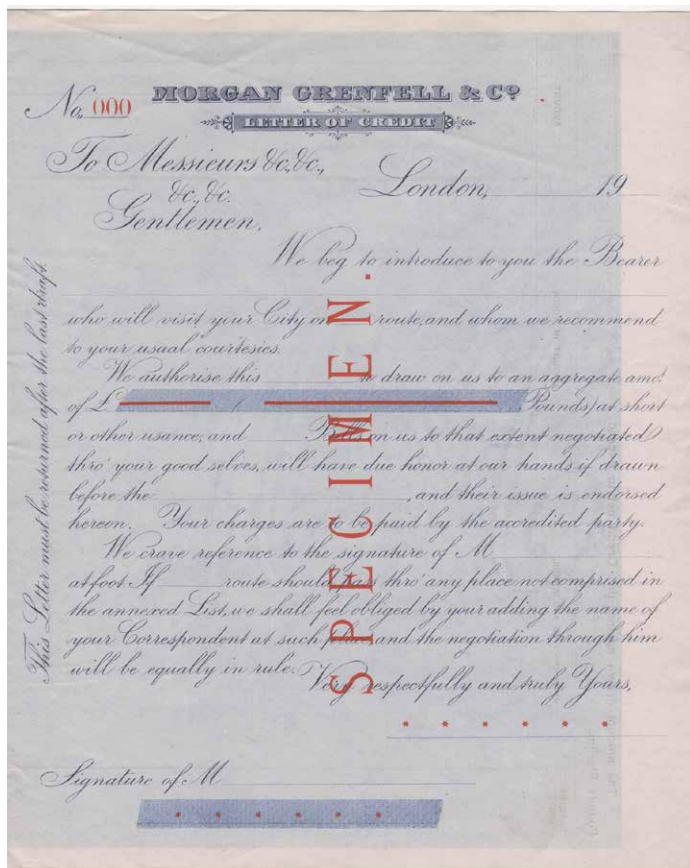 No. 000 MORGAN GRENFELL & Cº
LETTER OF CREDIT
To Messieurs &c, &c.,
&c., &c.
London, 19
Gentlemen,
We beg to introduce to you the Bearer
who will visit your City on route, and whom we recommend
to your usual courtesies.
We authorise this to draw on us to an aggregate amt.
of £ ( Pounds) at short
or other usance; and Bills on us to that extent negotiated
thro' your good selves, will have due honor at our hands if drawn
before the , and their issue is endorsed
hereon. Your charges are to be paid by the accredited party.
We crave reference to the signature of M
at foot. If route should pass thro' any place not comprised in
the annexed List, we shall feel obliged by your adding the name of
your Correspondent at such place and the negotiation through him
will be equally in rule.
Very respectfully and truly Yours,
* * * * * *
Signature of M
* * * * * *
This Letter must be returned after the last draft.
SPECIMEN.